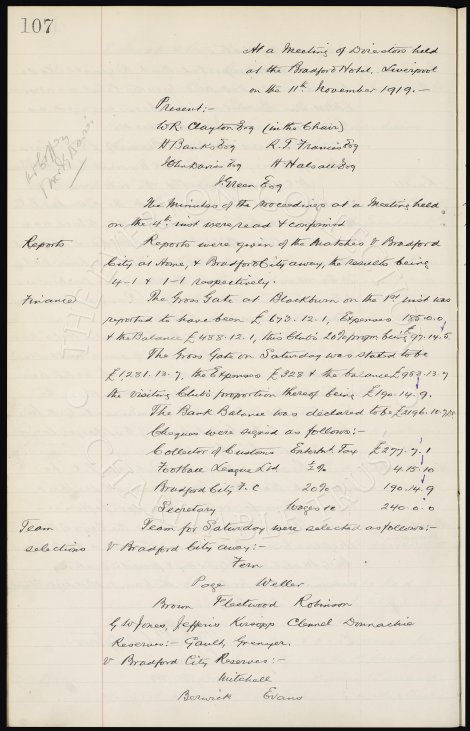 107
At a Meeting of Directors held
at the Bradford Hotel, Liverpool
on the 11th November 1919.-
Present:-
W.R. Clayton Esq (in the Chair)
H Banks Esq R.T. Francis Esq
John Davies Esq H Halsall Esq
J. Green Esq
The Minutes of the proceedings at a Meeting held
on the 4th inst were read & confirmed
Reports Reports were given of the Matches V Bradford
City at Home, & Bradford City away, the results being
4-1 & 1-1 respectively.
Finance The Gross Gate at Blackburn on the 1st inst was
reported to have been £673.12.1, Expenses 185.0.0
& the Balance £488.12.1, this Club's 20% propn. being £97.14.5.
The Gross Gate on Saturday was stated to be
£1,281.13.7, the Expenses £328 & the balance £953.13.7
the visiting Club's proportion thereof being £190.14.9.
The Bank Balance was declared to be £2196.10.7
Cheques were signed as follows:-
Collector of Customs Entertnt. Tax £277.7.1
Football League Ltd ½% 4.15.10
Bradford City F.C 20% 190.14.9
Secretary Wages &c 240.0.0
Team Team for Saturday were selected as follows:-
selections V Bradford City away:-
Fern
Page Weller
Brown Fleetwood Robinson
G W Jones, Jefferis Kirsopp Clennel Donnachie
Reserves:- Gault, Grenyer.
V Bradford City Reserves:-
Mitchell
Berwick Evans